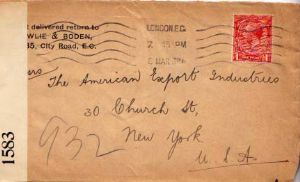 delivered return to
& BODEN,
35, City Road, E.C.
LONDON.E.C.
PM
MAR
The American Export Industries
30 Church St,
New York
U.S.A
932
1583